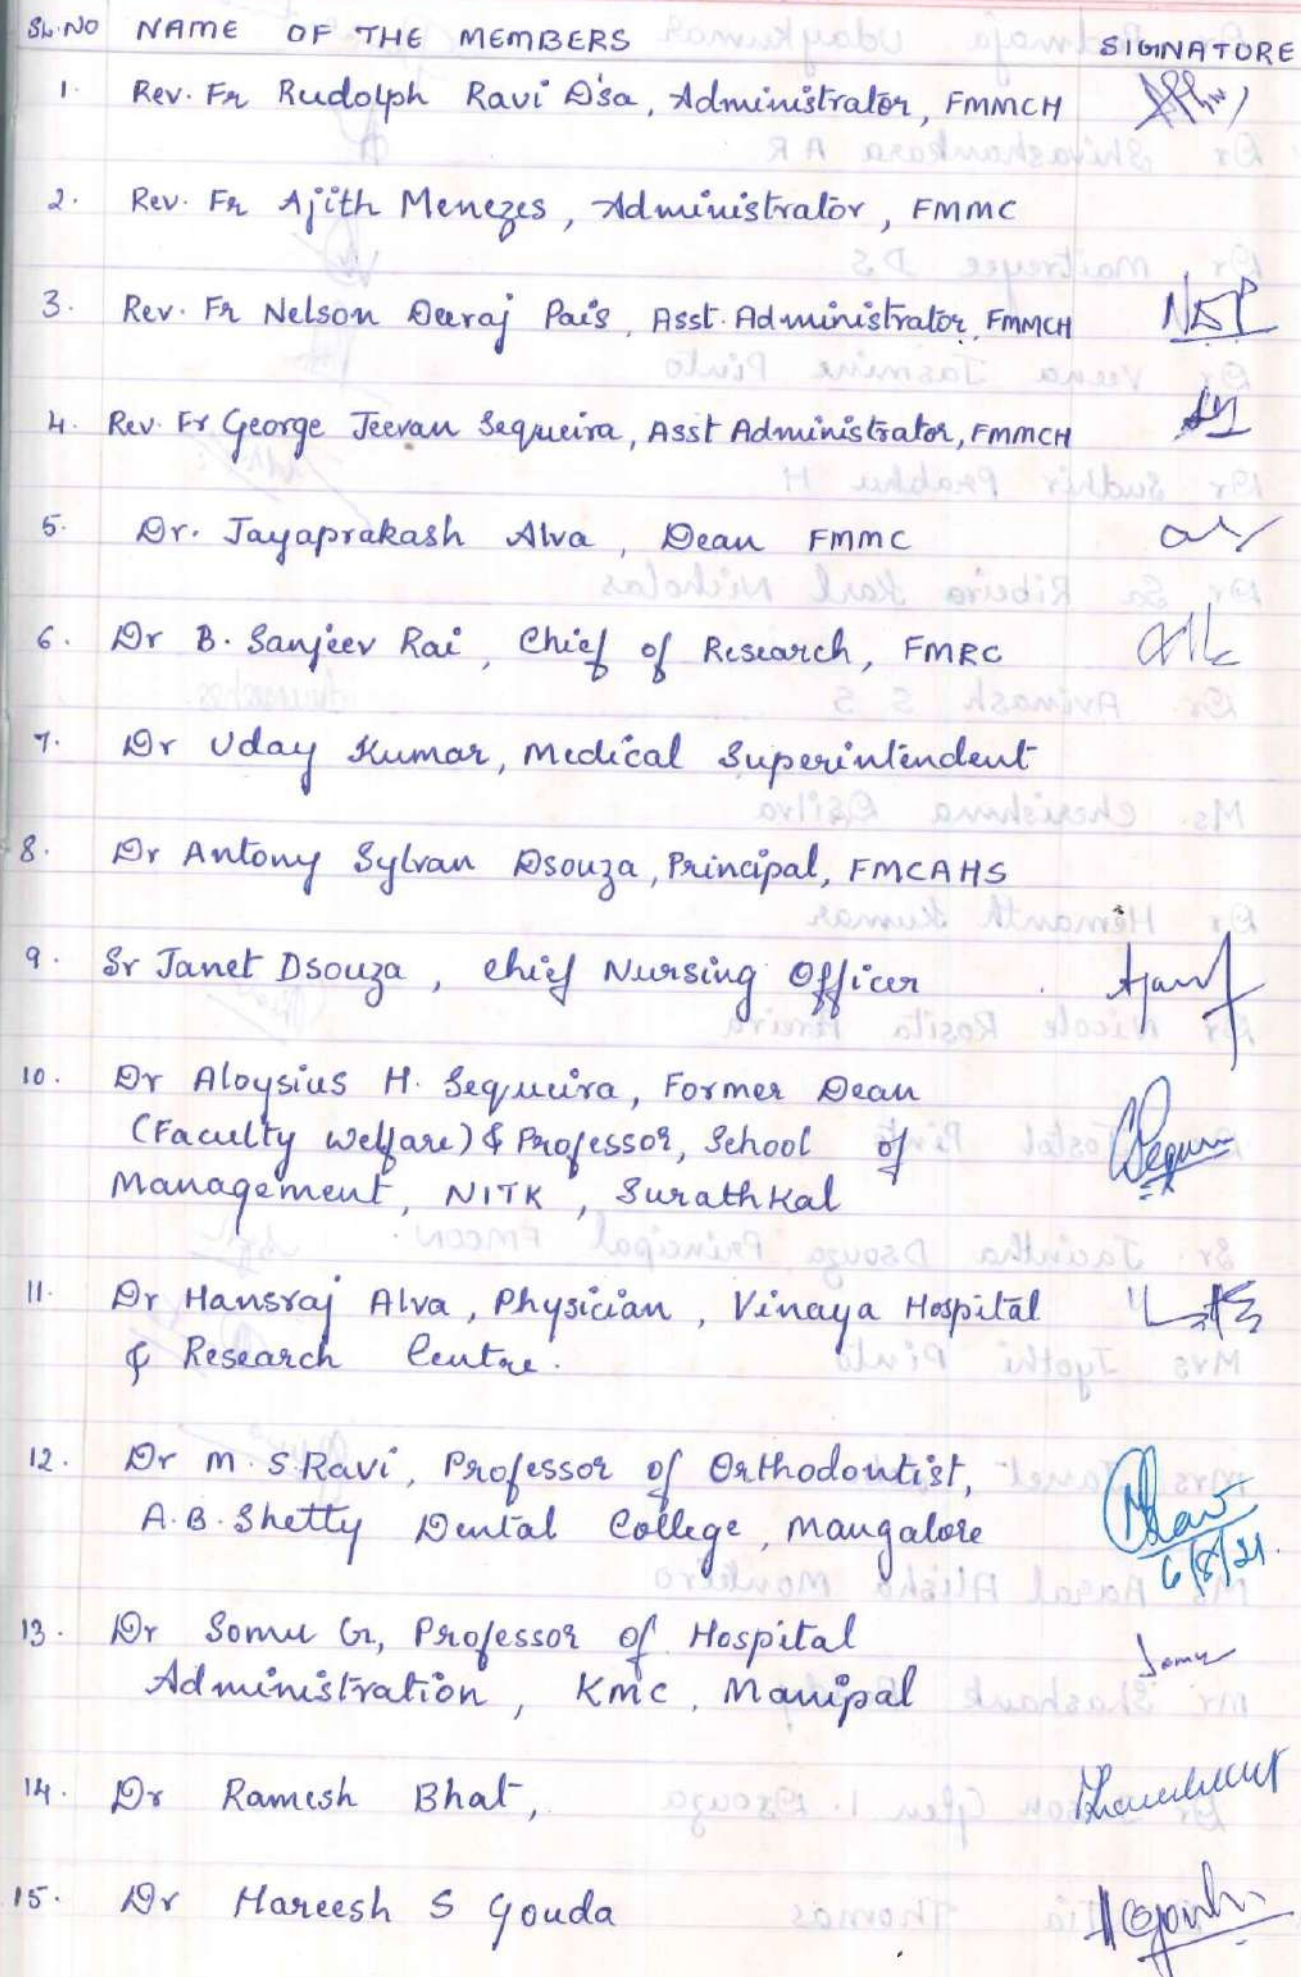 SL.NO NAME OF THE MEMBERS SIGNATURE
1. Rev. Fr Rudolph Ravi D'sa, Administrator, FMMCH
2. Rev. Fr Ajith Menezes, Administrator, FMMC
3. Rev. Fr Nelson Deeraj Pais, Asst. Administrator, FMMCH
4. Rev. Fr George Jeevan Sequeira, Asst Administrator, FMMCH
5. Dr. Jayaprakash Alva, Dean FMMC
6. Dr B. Sanjeev Rai, Chief of Research, FMRC
7. Dr Uday Kumar, Medical Superintendent
8. Dr Antony Sylvan Dsouza, Principal, FMCAHS
9. Sr Janet Dsouza, Chief Nursing Officer
10. Dr Aloysius H. Sequeira, Former Dean
(Faculty welfare) & Professor, School of
Management, NITK, Surathkal
11. Dr Hansraj Alva, Physician, Vinaya Hospital
& Research Centre.
12. Dr M.S.Ravi, Professor of Orthodontist,
A.B.Shetty Dental College, Mangalore
6/8/21.
13. Dr Somu G, Professor of Hospital
Administration, KMC, Manipal
Somu
14. Dr Ramesh Bhat,
15. Dr Hareesh S Gouda